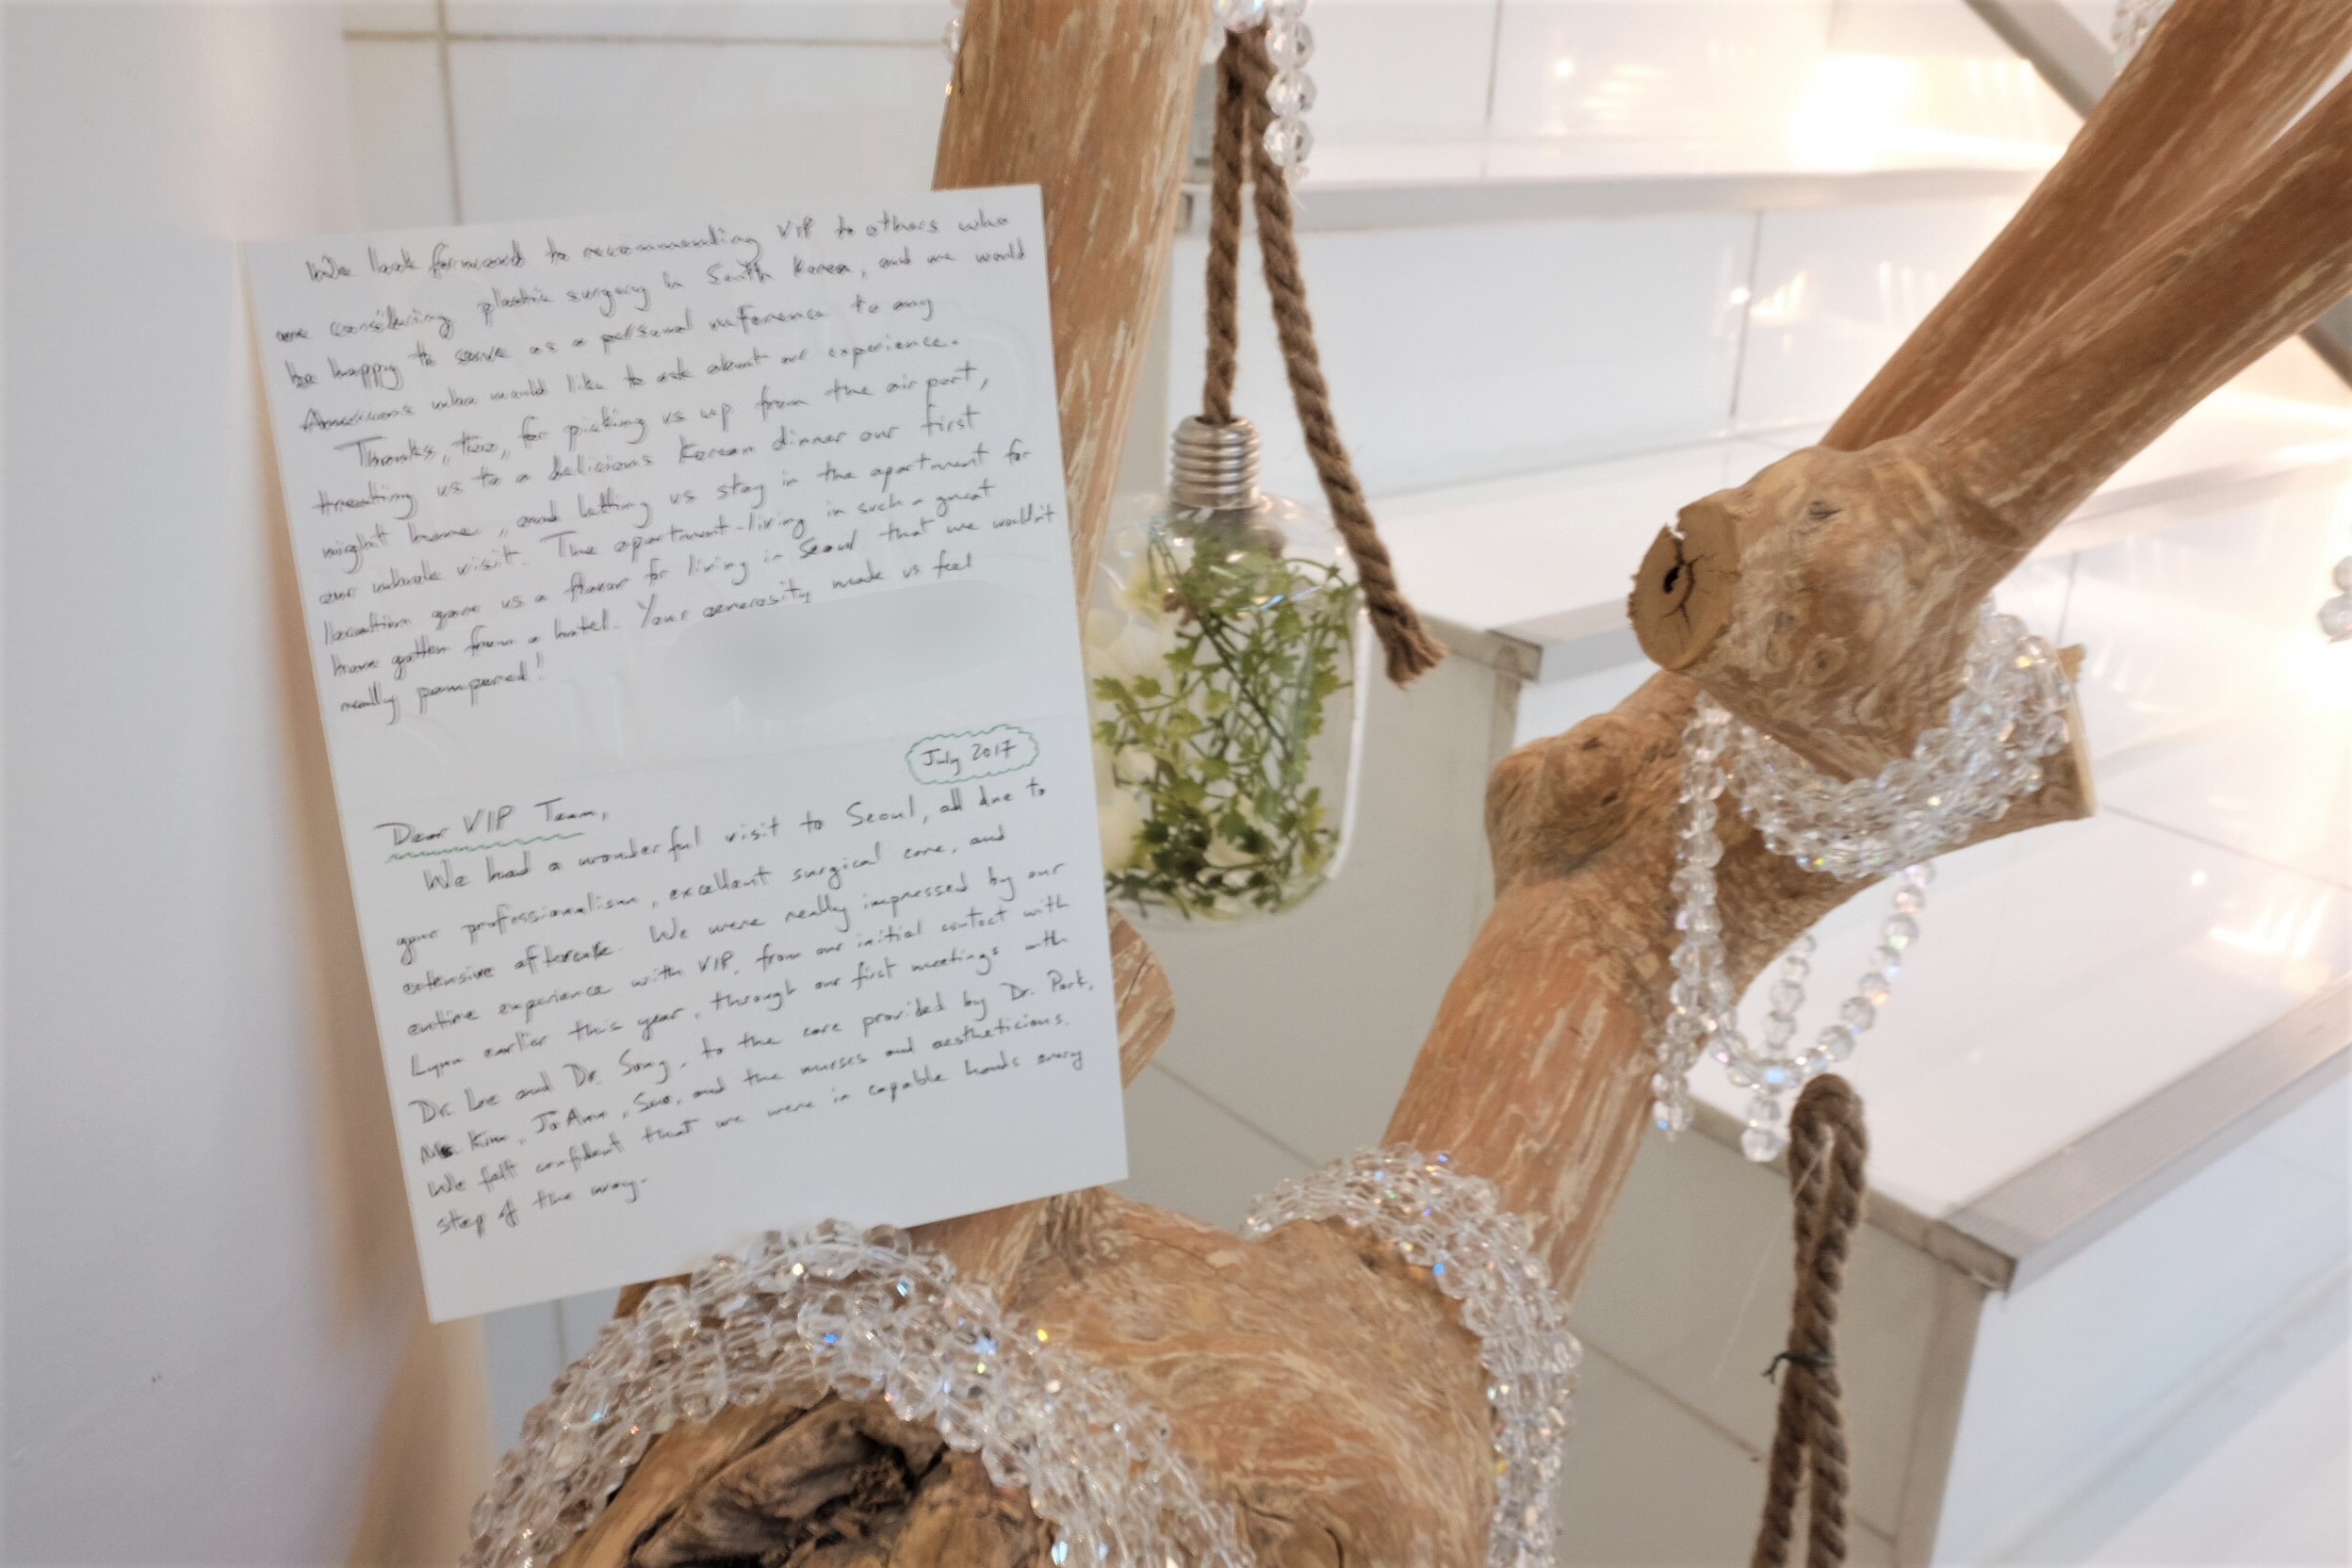 We look forward to recommending VIP to others who
are considering plastic surgery in South Korea, and we would
be happy to serve as a personal reference to any
Americans who would like to ask about our experience.
Thanks, too, for picking us up from the airport,
treating us to a delicious Korean dinner our first
night here, and letting us stay in the apartment for
our whole visit. The apartment-living in such a great
location gave us a flavor for living in Seoul that we wouldn't
have gotten from a hotel. Your generosity made us feel
really pampered!
July 2017
Dear VIP Team,
We had a wonderful visit to Seoul, all due to
your professionalism, excellent surgical care, and
extensive aftercare. We were really impressed by our
entire experience with VIP, from our initial contact with
Lynn earlier this year, through our first meetings with
Dr. Lee and Dr. Song, to the care provided by Dr. Park,
Ms. Kim, JoAnn, Sue, and the nurses and aestheticians.
We felt confident that we were in capable hands every
step of the way.